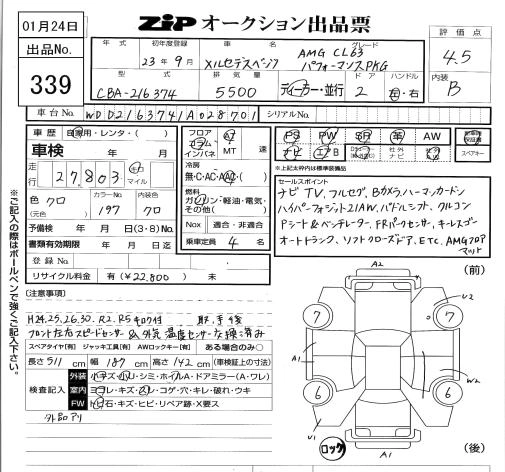 01月24日
出品No.
339
ZiP オークション出品票
評価点
4.5
内装
B
年式 初年度登録 車名 グレード
23年9月 メルセデスベンツ AMG CL63
パフォーマンスPKG
型式 排気量 ドア ハンドル
CBA-216374 5500 ディーラー・並行 2 左・右
車台No. WDD2163741A028701 シリアルNo.
車歴 自家用・レンタ・( )
車検 年 月
走行 27,803 キロ マイル
色 クロ カラーNo. 197 内装色 クロ
(元色)
予備検 年 月 日(3・8)No.
書類有効期限 年 月 日迄
登録No.
リサイクル料金 有(¥22,800) 未
フロア AT
コラム
インパネ MT 速
冷房
無・C・AC・AAC・( )
燃料
ガソリン・軽油・電気・
その他( )
Nox 適合・非適合
乗車定員 4 名
PS PW SR 革 AW
ナビ エアB 社外ナビ 社外革 スペアキー
*上記太枠内は標準装備品
セールスポイント
ナビTV、フルセグ、Bカメラ、ハーマンカードン
ハイパーフォジット21AW、パドルシフト、クルコン
Pシート&ベンチレーター、FRパークセンサー、キーレスゴー
オートトランク、ソフトクローズドア、ETC、AMGフロア
マット
※ご記入の際はボールペンで強くご記入下さい。
(注意事項)
H24.25.26.30. R2.R5 キロク付 取、手、后
フロント左右スピードセンサー & 外気温度センサー交換済み
スペアタイヤ[有] ジャッキ工具[有] AWロックキー[有] ある場合のみ○
長さ511 cm 幅187 cm 高さ142 cm (車検証上の寸法)
検査記入
外装 小キズ・小U・シミ・ホイルA・ドアミラー(A・ワレ)
室内 ヨゴレ・キズ・スレ・コゲ・穴・キレ・破れ・ウキ
FW トビ石・キズ・ヒビ・リペア跡・X要ス
外品アリ
(前)
A2
U2
7
7
A1
W2
6
6
U1
ロック
A1
(後)